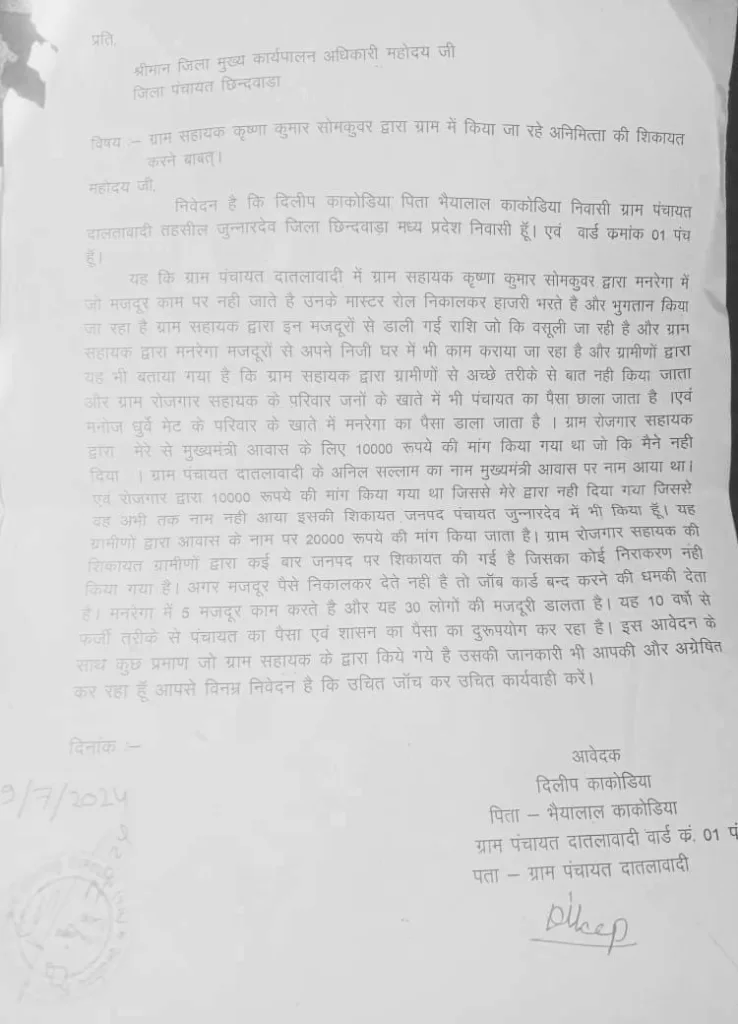 प्रति,
श्रीमान जिला मुख्य कार्यपालन अधिकारी महोदय जी
जिला पंचायत छिन्दवाड़ा
विषय :– ग्राम सहायक कृष्णा कुमार सोमकुवर द्वारा ग्राम में किया जा रहे अनिमित्ता की शिकायत
करने बाबत्।
महोदय जी,
निवेदन है कि दिलीप काकोडिया पिता भैयालाल काकोडिया निवासी ग्राम पंचायत
दालतावादी तहसील जुन्नारदेव जिला छिन्दवाड़ा मध्य प्रदेश निवासी हूँ। एवं वार्ड कमांक 01 पंच
हूँ।
यह कि ग्राम पंचायत दातलावादी में ग्राम सहायक कृष्णा कुमार सोमकुवर द्वारा मनरेगा में
जो मजदूर काम पर नही जाते है उनके मास्टर रोल निकालकर हाजरी भरते है और भुगतान किया
जा रहा है ग्राम सहायक द्वारा इन मजदूरों से डाली गई राशि जो कि वसूली जा रही है और ग्राम
सहायक द्वारा मनरेगा मजदूरों से अपने निजी घर में भी काम कराया जा रहा है और ग्रामीणों द्वारा
यह भी बताया गया है कि ग्राम सहायक द्वारा ग्रामीणों से अच्छे तरीके से बात नही किया जाता
और ग्राम रोजगार सहायक के परिवार जनों के खाते में भी पंचायत का पैसा छाला जाता है ।एवं
मनोज धुर्वे मेट के परिवार के खाते में मनरेगा का पैसा डाला जाता है । ग्राम रोजगार सहायक
द्वारा मेरे से मुख्यमंत्री आवास के लिए 10000 रूपये की मांग किया गया था जो कि मैने नही
दिया । ग्राम पंचायत दातलावादी के अनिल सल्लाम का नाम मुख्यमंत्री आवास पर नाम आया था।
एवं रोजगार द्वारा 10000 रूपये की मांग किया गया था जिससे मेरे द्वारा नही दिया गया जिससे
वह अभी तक नाम नही आया इसकी शिकायत जनपद पंचायत जुन्नारदेव में भी किया हूँ। यह
ग्रामीणों द्वारा आवास के नाम पर 20000 रूपये की मांग किया जाता है। ग्राम रोजगार सहायक की
शिकायत ग्रामीणों द्वारा कई बार जनपद पर शिकायत की गई है जिसका कोई निराकरण नंही
किया गया है। अगर मजदूर पैसे निकालकर देते नही है तो जॉब कार्ड बन्द करने की धमकी देता
है। मनरेगा में 5 मजदूर काम करते है और यह 30 लोगों की मजदूरी डालता है। यह 10 वर्षो से
फर्जी तरीके से पंचायत का पैसा एवं शासन का पैसा का दुरूपयोग कर रहा है। इस आवेदन के
साथ कुछ प्रमाण जो ग्राम सहायक के द्वारा किये गये है उसकी जानकारी भी आपकी और अग्रेषित
कर रहा हूँ आपसे विनम्र निवेदन है कि उचित जॉच कर उचित कार्यवाही करें।
दिनांक :–
9/7/2024
आवेदक
दिलीप काकोडिया
पिता – भैयालाल काकोडिया
ग्राम पंचायत दातलावादी वार्ड कं. 01 पं
पता – ग्राम पंचायत दातलावादी
Dileep